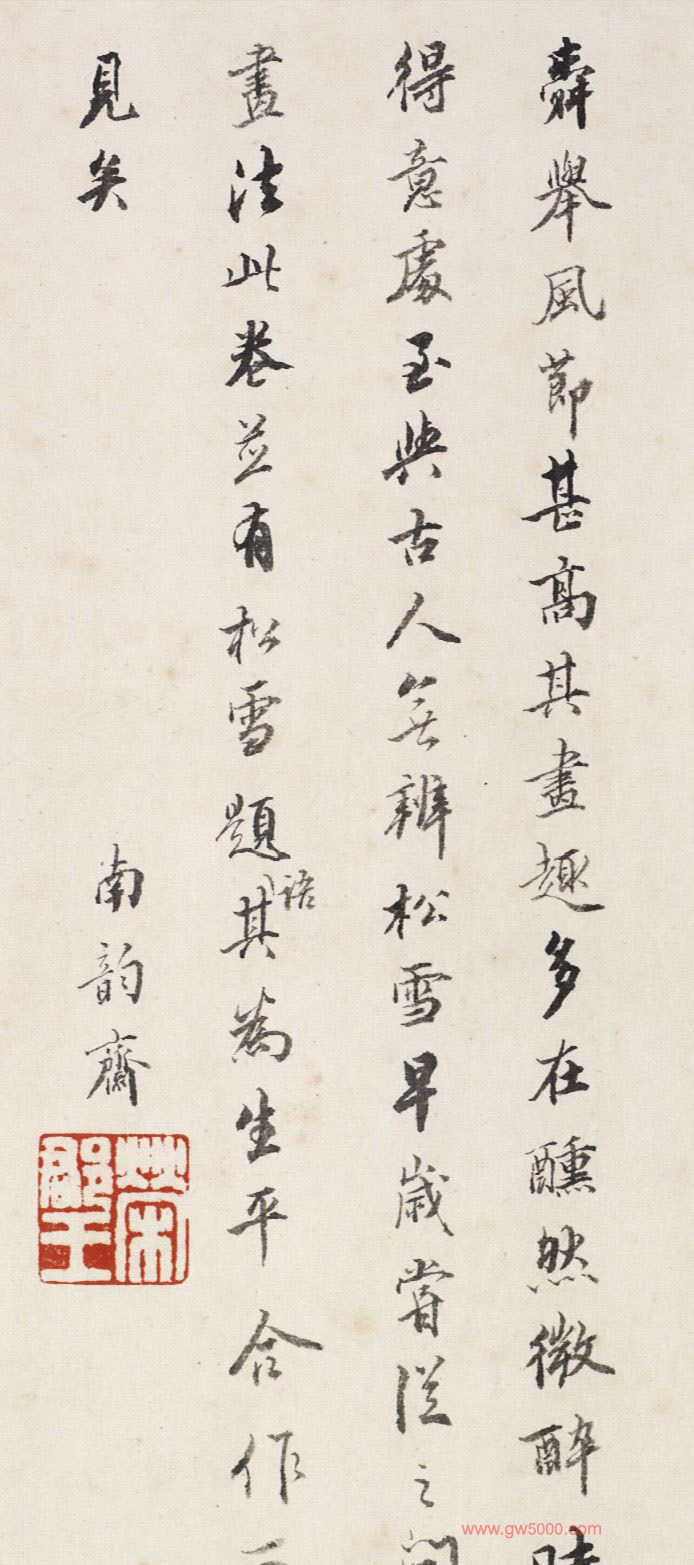 舜舉風節甚高其畫趣多在醺然微醉時
得意處至與古人無辨松雪早歲嘗從之問
畫法此卷並有松雪題語其為生平合作
見矣
南韵齋
榮郡王
www.gw5000.com